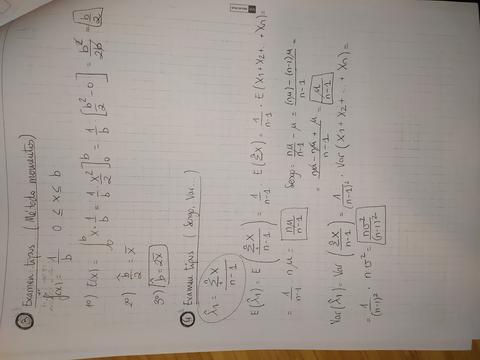 ③ Examen tipos (Método momentos)
f(x) = 1/b   0 ≤ x ≤ b
1º) E(x) = ∫₀ᵇ x · 1/b = 1/b [x²/2]₀ᵇ = 1/b [b²/2 - 0] = b²/2b = b/2
2º) b̂/2 = x̄
3º) b̂ = 2x̄
④ Examen tipos (Sesgo, Var.)
λ̂₁ = ΣX/(n-1)
E(λ̂₁) = E(ΣX/(n-1)) = 1/(n-1) E(ΣX) = 1/(n-1) · E(X₁+X₂+...+Xn) =
= 1/(n-1) · nμ = nμ/(n-1)
Sesgo = nμ/(n-1) - μ = (nμ) - (n-1)μ/(n-1) =
= nμ - nμ + μ/(n-1) = μ/(n-1)
Var(λ̂₁) = Var(ΣX/(n-1)) = 1/(n-1)² · Var(X₁+X₂+...+Xn) =
= 1/(n-1)² · nσ² = nσ²/(n-1)²